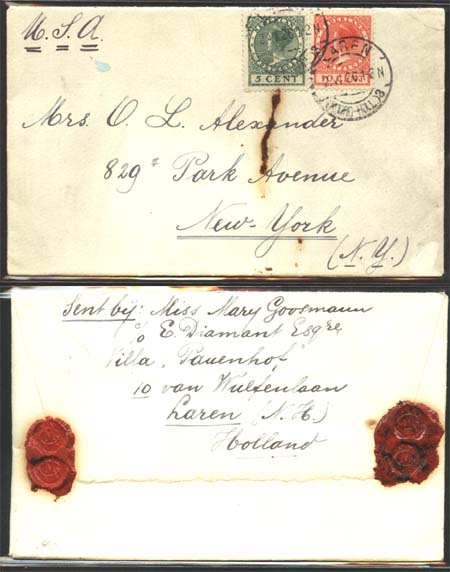 U.S.A.
5 CENT
LAREN
Mrs. O. L. Alexander
829 Park Avenue
New-York
(N.Y.)
Sent bij: Miss Mary Goosmann
c/o E. Diamant Esqre
Villa "Pauenhof
10 van Wulfenlaan
Laren (N.H.)
Holland